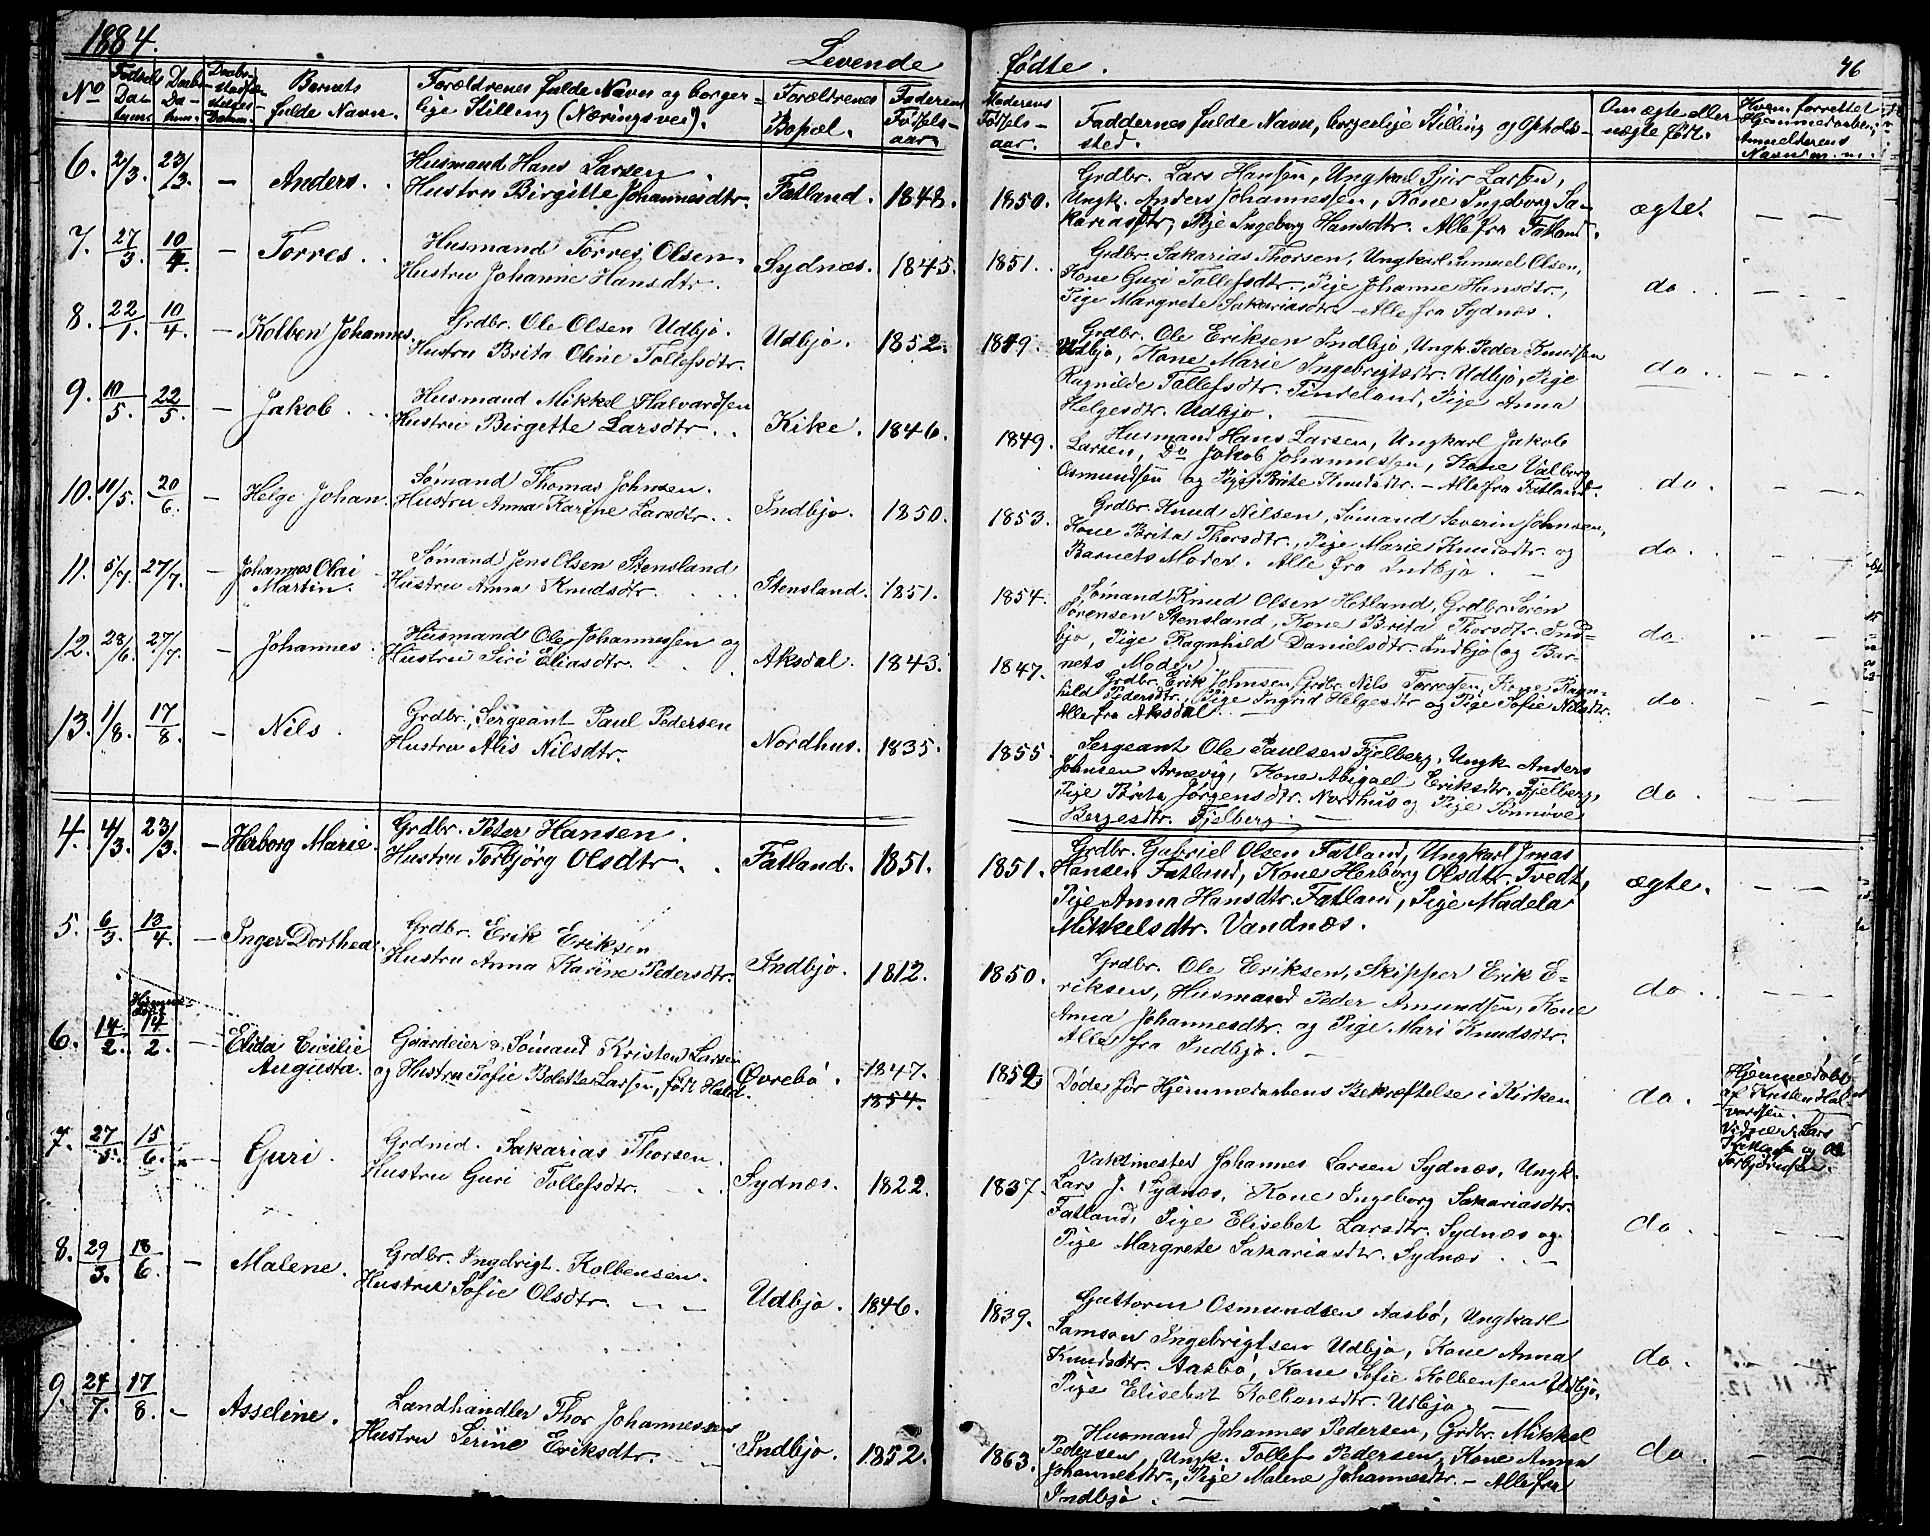 1884.
Levende
No
Fødsels Datum.
Daabs Datum.
Barnets fulde Navn.
Forældrenes fulde Navn og borgerlige Stilling (Næringsvei).
Forældrenes Bopæl.
Faderens Fødselsaar
6. 2/3. 23/3. — Anders. Husmand Hans Larsen
Hustru Birgitte Johannesdtr. Fatland. 1848.
7. 27/3 10/4 — Torres. Husmand Torres Olsen
Hustru Johanne Hansdtr. Sydnæs. 1845.
8. 22/1. 10/4. — Kolben Johannes. Grdbr. Ole Olsen Udbjo.
Hustru Brita Oline Tollefsdtr. Udbjo. 1852.
9. 10/5. 22/5. — Jakob. Husmand Mikkel Halvardsen
Hustru Birgette Larsdtr. Kike. 1846.
10. 11/5. 20/6. — Helge Johan. Sømand Thomas Johnsen.
Hustru Anna Karine Larsdtr. Indbjo. 1850.
11. 5/7. 27/7. — Johannes Olai
Martin. Sømand Jens Olsen Stensland
Hustru Anna Knudsdtr. Stensland. 1851.
12. 28/6. 27/7. — Johannes. Husmand Ole Johannessen og
Hustru Siri Eliasdtr. Aksdal. 1843.
13. 1/8. 17/8. — Nils. Grdbr., Sergeant Paul Pedersen
Hustru Alis Nilsdtr. Nordhus. 1835.
4. 4/3. 23/3. — Herborg Marie. Grdbr. Peter Hansen.
Hustru Torbjørg Olsdtr. Fatland. 1851.
5. 6/3. 13/4. — Inger Dorthea. Grdbr. Erik Eriksen
Hustru Anna Karine Pedersdtr. Indbjo. 1812.
6. 14/2. 14/2. — Elida Cicilie
Augusta. Gaardeier & Sømand Kristen Larsen
og Hustru Sofie Bolette Larsen, født Hald. Øvrebø. 1847.
1854.
7. 27/5. 15/6. — Guri. Grdmd. Sakarias Thorsen.
Hustru Guri Tollefsdtr. Sydnæs. 1822.
8. 29/3. 18/6. — Malene. Grdbr. Ingdrigt Kolbensen.
Hustru Sofie Olsdtr. Udbjo. 1846.
9. 24/7. 17/8. — Asseline. Landhandler Thor Johannessen
Hustru Serine Eriksdtr. Indbjo. 1852.
fødte.
46
Moderens Fødselsaar.
Faddernes fulde Navn, borgerlige Stilling og Opholdssted.
Om ægte eller uægte født.
Hvem forrettet Hjemmedaaben, Anmelderens Navn m. m.
1850. Grdbr. Lars Hansen, Ungkarl Sjur Larsen,
Ungk. Anders Johannessen, Kone Ingeborg Sa-
kariasdtr, Pije Ingeborg Hansdtr. Alle fra Fatland. ægte. — —
1851. Grdbr. Sakarias Thorsen, Ungkarl Samuel Olsen,
Kone Guri Tollefsdtr., Pige Johanne Hansdtr.,
Pige Margrete Sakariasdtr. Alle fra Sydnæs. do. — —
1849. Grdbr. Ole Eriksen Indbjo, Ungk. Peder Knudsen
Udbjo, Kone Marie Ingebrigtsdtr. Udbjo, Pige
Ragnilde Tollefsdtr. Tindeland, Pige Anna
Helgesdtr. Udbjo. do. — —
1849. Husmand Hans Larsen, Ungkarl Jakob
Larsen, Do Jakob Johannessen, Kone Valborg
Osmundsen og Pige Brite Knudsdtr. — Alle fra Fatland. do. — —
1853. Grdbr. Knud Nilsen, Sømand Severin Johnsen,
Kone Brita Thorsdtr., Pige Marie Knudsdtr. og
Barnets Moder. Alle fra Indbjo. do. — —
1854. Sømand Knud Olsen Hetland, Grdbr. Søren
Sørensen Stensland, Kone Brita Thorsdtr. Ind-
bjo, Pige Ragnhild Danielsdtr. Indbjo (og Bar-
nets Moder) do. — —
1847. Grdbr. Erik Johnsen, Grdbr. Nils Torressen, Kone Ragn-
hild Pedersdtr., Pige Ingrid Helgesdtr og Pige Sofie Nilsdtr.
Alle fra Aksdal. do. — —
1855. Sergeant Ole Paulsen Fjelberg, Ungk. Anders
Johnsen Arnevig, Kone Abigael Eriksdtr. Fjelberg,
Pige Brita Jørgensdtr. Nordhus og Pige Synnøve
Bergesdtr. Fjelberg. do. — —
1851. Grdbr. Gabriel Olsen Fatland, Ungkarl Jonas
Hansen Fatland, Kone Herborg Olsdtr. Tvedt,
Pije Anna Hansdtr. Fatland, Pije Madela
Mikkelsdtr. Vandnæs. ægte. — —
1850. Grdbr. Ole Eriksen, Skipper Erik E-
riksen, Husmand Peder Amundsen, Kone
Anna Johannesdtr. og Pige Mari Knudsdtr.
Alle fra Indbjo. do. — —
1852 Døde før Hjemmedaabens Bekræftelse i Kirken do. Hjemmedøbt
af Kristen Hal-
vardsen.
Vidner: Lars
Torbjørnsen.
1837. Vaktmester Johannes Larsen Sydnæs, Ungk.
Lars J. Sydnæs, Kone Ingeborg Sakariasdtr.
Fatland, Pige Elisebet Larsdtr. Sydnæs og
Pige Margrete Sakariasdtr. Sydnæs. do. — —
1839. Guttorm Osmundsen Aasbø, Ungkarl
Samson Ingebrigtsen Udbjo, Kone Anna
Knudsdtr. Aasbø, Kone Sofie Kolbensen Udbjo,
Pige Elisebet Kolbensdtr. Udbjo do.
1863. Husmand Johannes Pedersen, Grdbr. Mikkel
Pedersen, Ungk. Tollef Pedersen, Kone Anna
Johannesdtr., Pije Malene Johannesdtr. — Alle fra
Indbjo. do. — —